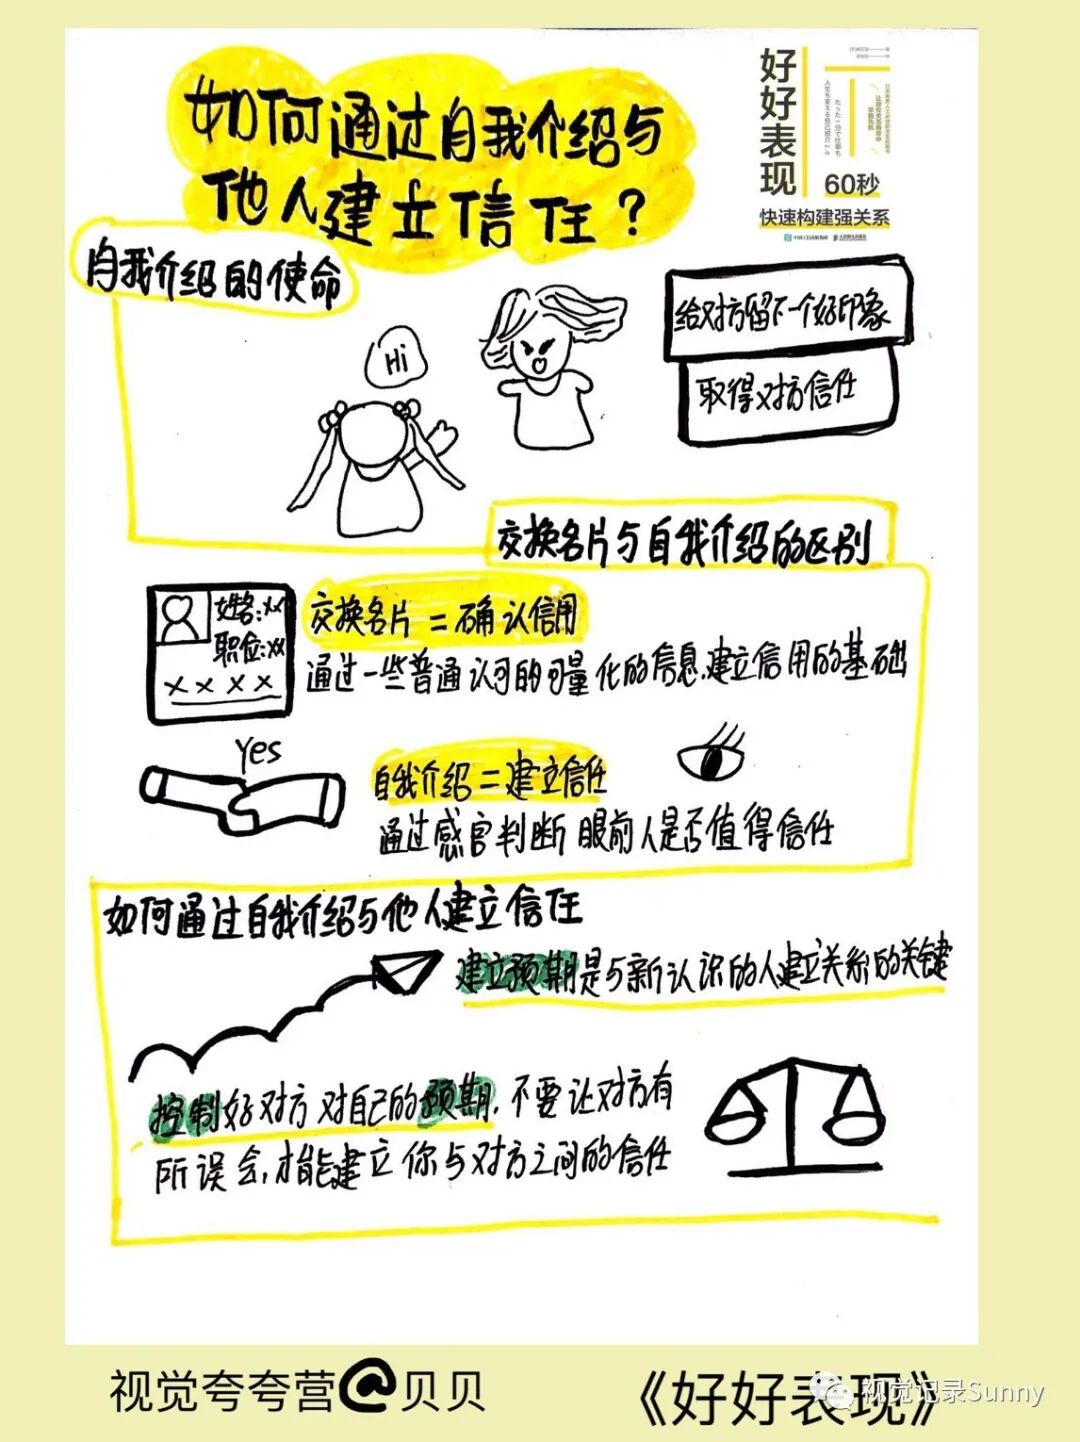 如何通过自我介绍与
他人建立信任?
好好表现
60秒
快速构建强关系
人生も変える自己紹介2.0
たった一分で仕事も
自我介绍的使命
Hi
给对方留下一个好印象
取得对方信任
交换名片与自我介绍的区别
姓名:xx
职位:xx
xxxx
交换名片=确认信用
通过一些普通认可的可量化的信息,建立信用的基础
Yes
自我介绍=建立信任
通过感官判断眼前人是否值得信任
如何通过自我介绍与他人建立信任
建立预期是与新认识的人建立关系的关键
控制好对方对自己的预期,不要让对方有
所误会,才能建立你与对方之间的信任
视觉夸夸营@贝贝
《好好表现》
视觉记录Sunny